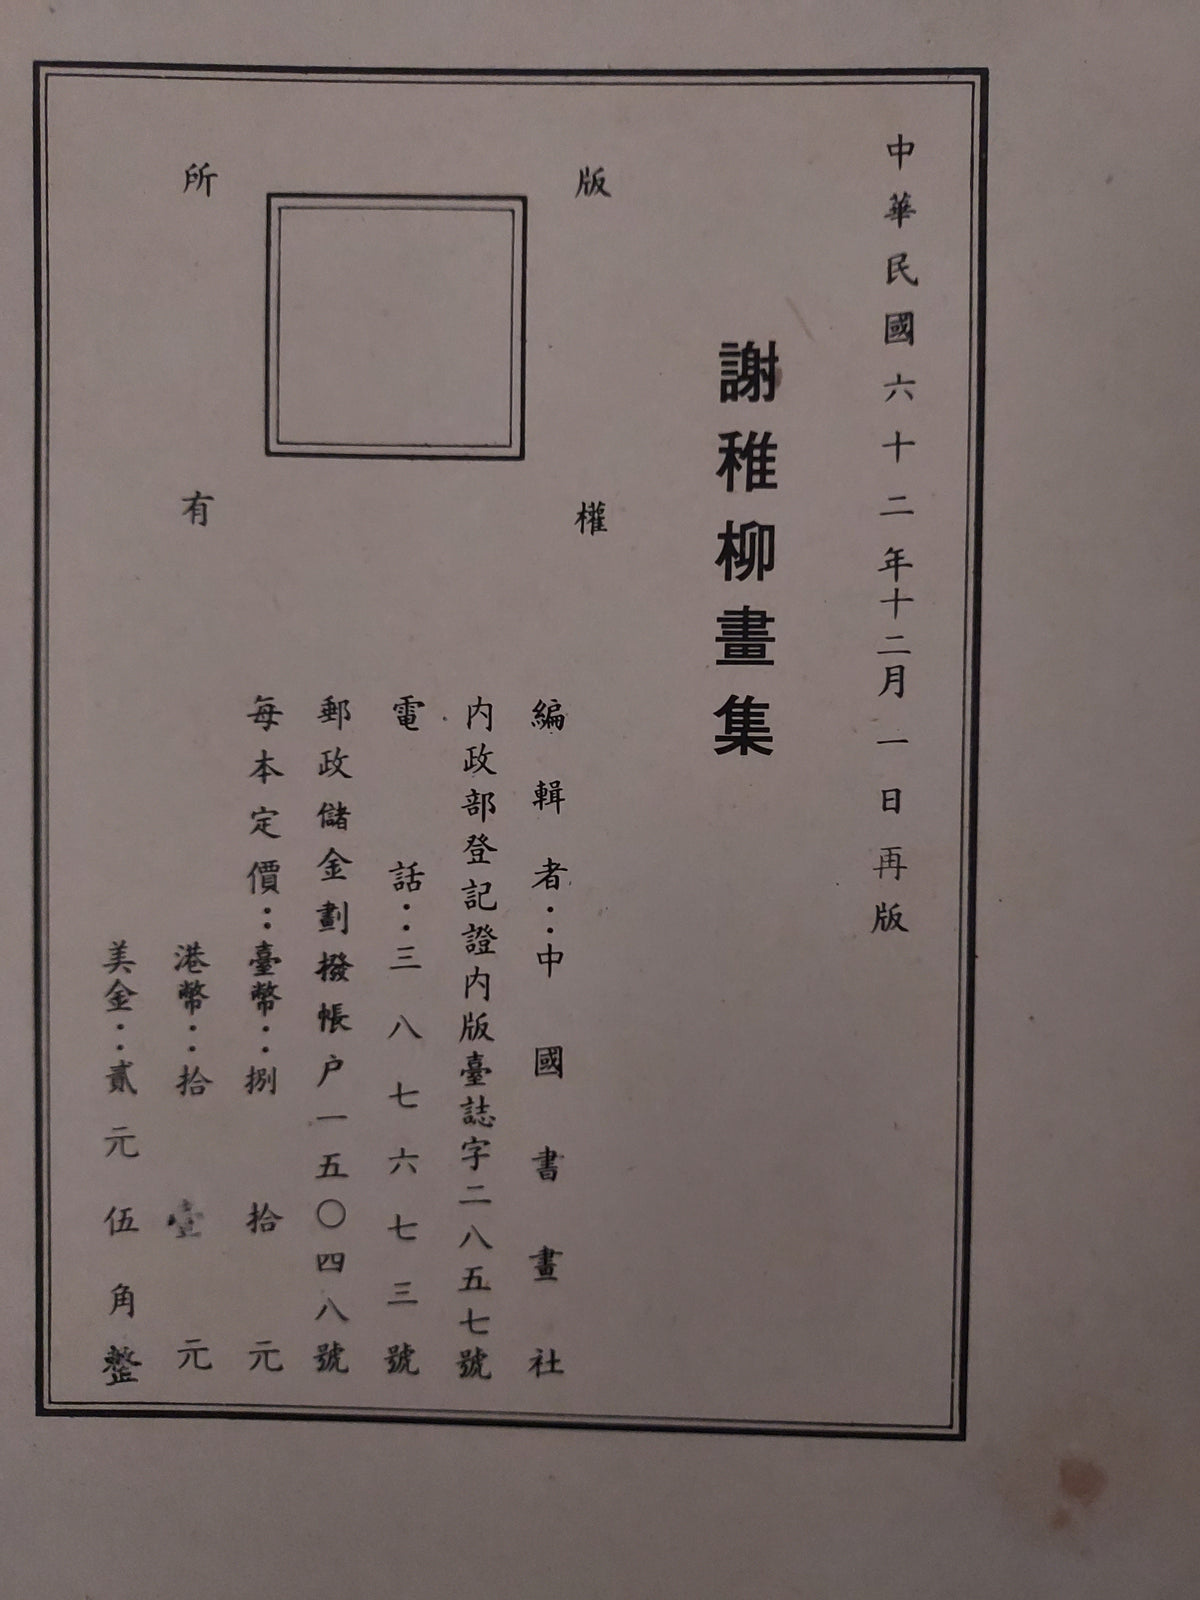 中華民國六十二年十二月一日再版
謝稚柳畫集
版權
所有
編輯者:中國書畫社
内政部登記證内版臺誌字二八五七號
電話:三八七六七三號
郵政儲金劃撥帳户一五〇四八號
每本定價:臺幣:捌拾元
港幣:拾壹元
美金:貳元伍角整